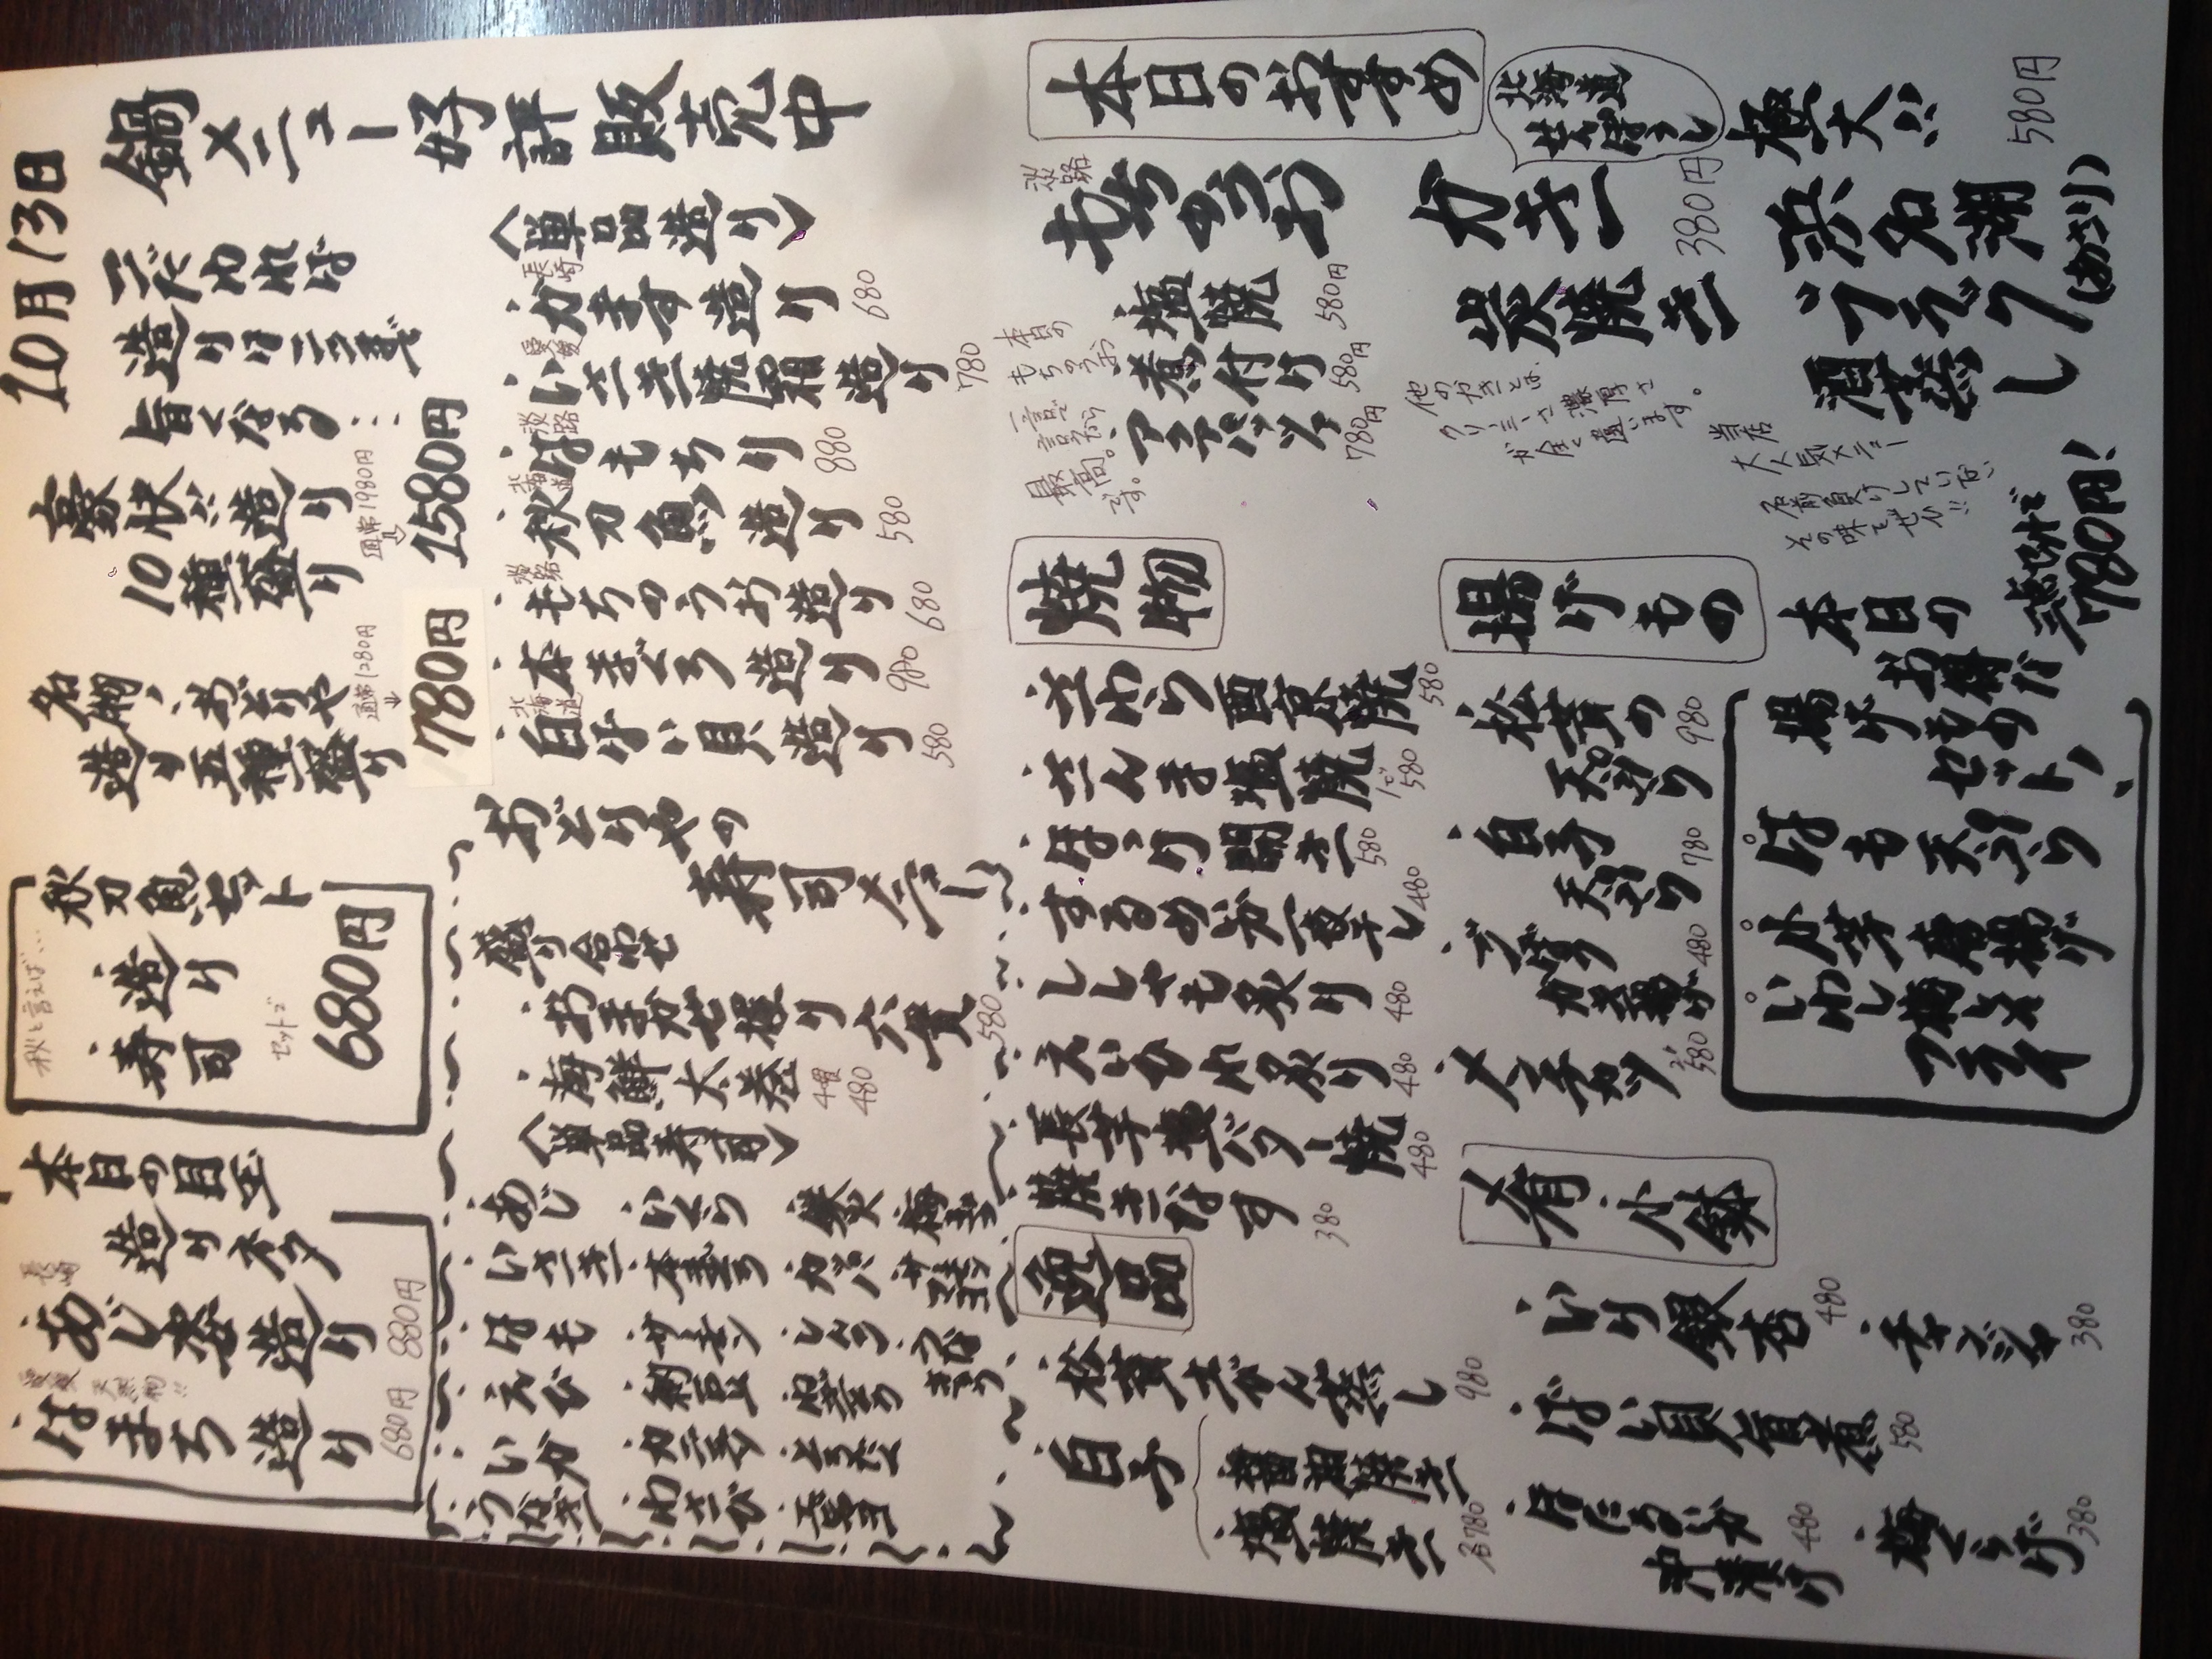 10月13日
鍋メニュー好評販売中
こだわれば
造りはここまで
旨くなる…
豪快!!造り
10種盛り
通常1980円
1580円
名物、おどりや
造り五種盛り
通常1280円
780円
秋と言えば…
秋刀魚セット
・造り
・寿司
セットで
680円
本日の目玉
造りネタ
長崎
・あじ姿造り
880円
愛媛 天然物!!
・はまち造り
680円
〈単品造り〉
長崎
・かます造り 680
愛媛
・いさき焼霜造り 780
淡路
・はもちり 880
北海道
・秋刀魚造り 580
淡路
・もちのうお造り 680
・本まぐろ造り 980
北海道
・白ばい貝造り 580
おどりやの
寿司メニュー
盛り合わせ
・おまかせ握り六貫 580
・海鮮太巻 4貫 480
〈単品寿司〉
・あじ
・いさき
・はも
・えび
・いか
・うなぎ
・いくら
・本まぐろ
・サーモン
・納豆
・カニみそ
・わさび
・鉄火
・カッパ
・しんこ
・とろたく
本日のおすすめ
淡路
もちのうお
・塩焼 580円
・煮付け 580円
・アクアパッツァ 780円
本日の
もちのうお
一言で
言うなら
最高。
です。
カキ
炭焼き
380円
他のカキとは、
クリーミーさ濃厚さ
が全く違います。
極大!!
浜名湖
アサリ
酒蒸し
(あさり)
580円
当店
大人気メニュー
名前負けしていない
その味をぜひ!!
焼物
・さわら西京焼 580
・さんま塩焼 580
・ほっけ開き 580
・するめいか一夜干し 480
・ししゃも炙り 480
・えいひれ炙り 480
・長芋塩バター焼 480
・焼きなす 380
逸品
・松茸土びん蒸し 980
・白子
・醤油焼き
・塩焼き
各780
揚げもの
・松茸の天ぷら 980
・白子天ぷら 780
・から揚げ 480
・メンチカツ 580
本日の
お得な
揚げもの
セット
。はも天ぷら
。小芋唐揚げ
。いわし梅しそ
フライ
盛り合わせで
780円!
肴 小鉢
・いり銀杏 480
・ばい貝旨煮 580
・ほたるいか沖漬け 480
・チャンジャ 380
・梅くらげ 380